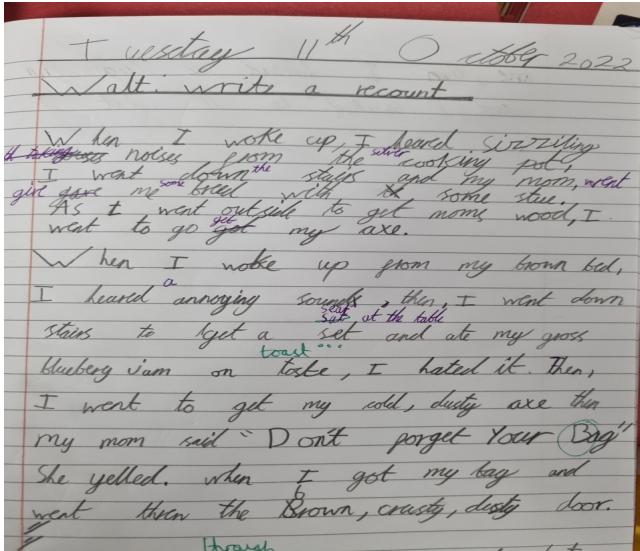 Tuesday 11th October 2022
Walt: write a recount
When I woke up, I heared sizzziling
noises from the silver cooking pot,
I went down the stairs and my mom, went
give gave me some breed with some stue.
As I went outside to get moms wood, I
went to go get got my axe.
When I woke up from my brown bed,
I heared a annoying sounds, then, I went down
seat
stairs to get a set sat at the table and ate my gross
toast...
blueberg jam on toste, I hated it. Then,
I went to get my cold, dusty axe then
my mom said "Don't porget Your Bag"
She yelled. when I got my bag and
went thren the Brown, crusty, dusty door.
through